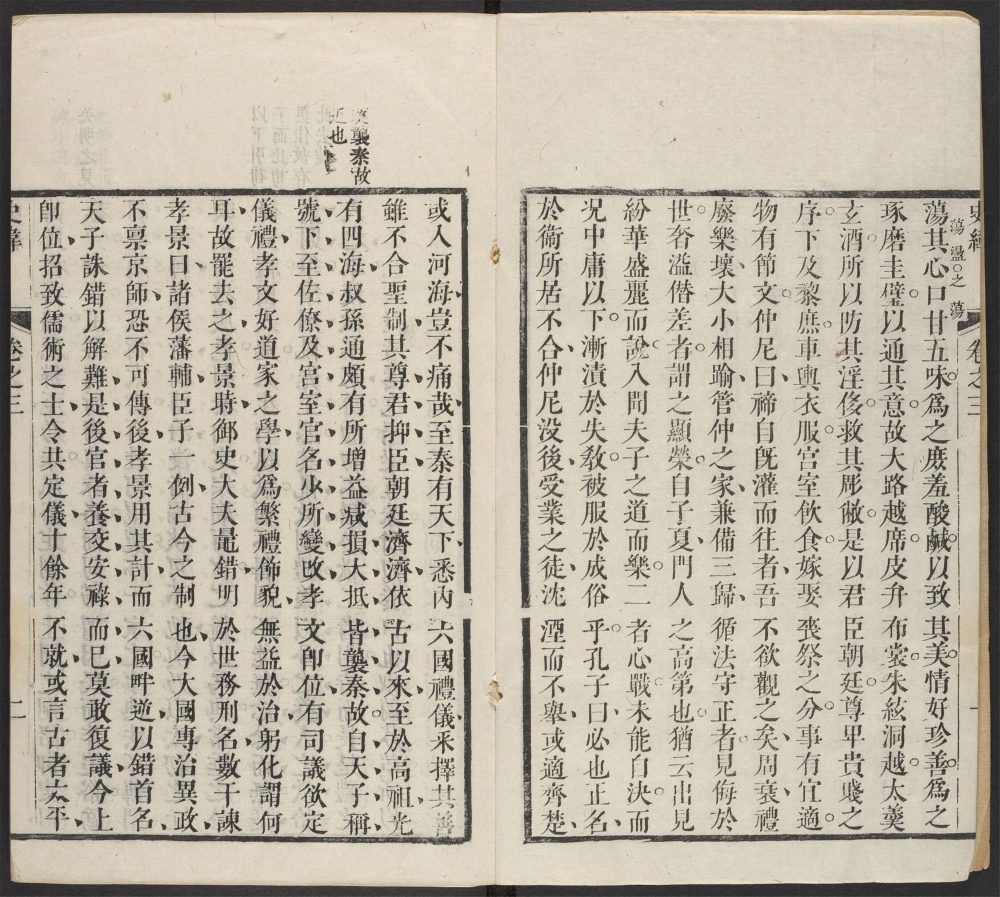 卷之三
一
蕩盪之蕩
蕩其心口甘五味爲之庶羞酸鹹以致其美情好珍善爲之
琢磨圭璧以通其意故大路越席皮弁布裳朱絃洞越太羹
玄酒所以防其淫侈救其彫敝是以君臣朝廷尊卑貴賤之
序下及黎庶車輿衣服宮室飲食嫁娶喪祭之分事有宜適
物有節文仲尼曰禘自旣灌而往者吾不欲觀之矣周衰禮
廢樂壞大小相踰管仲之家兼備三歸循法守正者見侮於
世奢溢僭差者謂之顯榮自子夏門人之高第也猶云出見
紛華盛麗而說入聞夫子之道而樂二者心戰未能自決而
况中庸以下漸漬於失敎被服於成俗乎孔子曰必也正名
於衞所居不合仲尼没後受業之徒沈湮而不舉或適齊楚
漢襲秦故
近也
或入河海豈不痛哉至秦有天下悉內六國禮儀采擇其善
雖不合聖制其尊君抑臣朝廷濟濟依古以來至於高祖光
有四海叔孫通頗有所增益減損大抵皆襲秦故自天子稱
號下至佐僚及宮室官名少所變改孝文卽位有司議欲定
儀禮孝文好道家之學以爲繁禮飾貌無益於治躬化謂何
耳故罷去之孝景時御史大夫鼂錯明於世務刑名數干諫
孝景曰諸侯藩輔臣子一例古今之制也今大國專治異政
不禀京師恐不可傳後孝景用其計而六國畔逆以錯首名
天子誅錯以解難是後官者養交安祿而已莫敢復議今上
卽位招致儒術之士令共定儀十餘年不就或言古者太平
史緯
卷之三
二